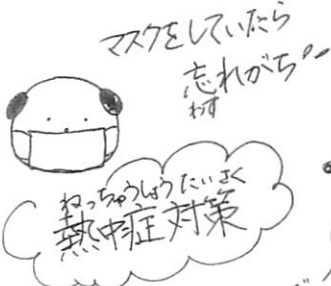 マスクをしていたら
忘れがち
わす
ねっちゅうしょうたいさく
熱中症対策